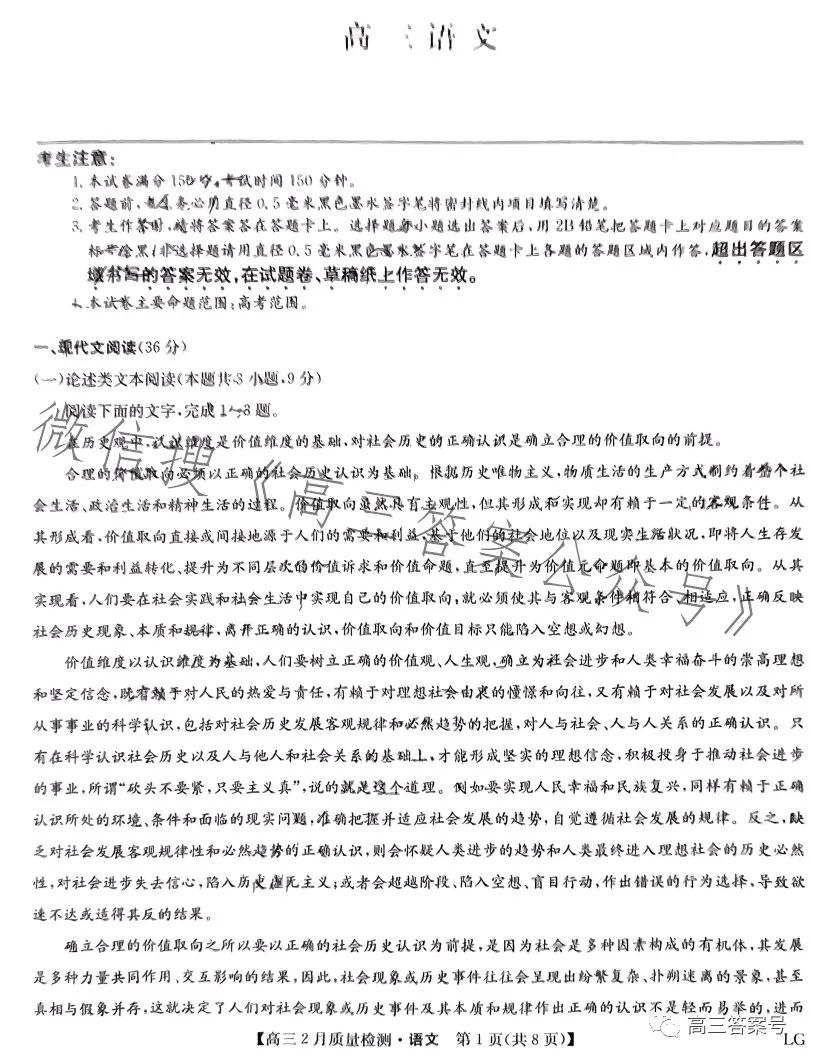 高三语文
考生注意:
1.本试卷满分150分,考试时间150分钟。
2.答题前,考生务必用直径0.5毫米黑色墨水签字笔将密封线内项目填写清楚。
3.考生作答时,请将答案答在答题卡上。选择题每小题选出答案后,用2B铅笔把答题卡上对应题目的答案
标号涂黑;非选择题请用直径0.5毫米黑色墨水签字笔在答题卡上各题的答题区域内作答,超出答题区
域书写的答案无效,在试题卷、草稿纸上作答无效。
4.本试卷主要命题范围:高考范围。
一、现代文阅读(36分)
(一)论述类文本阅读(本题共3小题,9分)
阅读下面的文字,完成1~3题。
在历史观中,认识维度是价值维度的基础,对社会历史的正确认识是确立合理的价值取向的前提。
合理的价值取向必须以正确的社会历史认识为基础。根据历史唯物主义,物质生活的生产方式制约着整个社
会生活、政治生活和精神生活的过程。价值取向虽然具有主观性,但其形成和实现却有赖于一定的客观条件。从
其形成看,价值取向直接或间接地源于人们的需要和利益,基于他们的社会地位以及现实生活状况,即将人生存发
展的需要和利益转化、提升为不同层次的价值诉求和价值命题,直至提升为价值元命题即基本的价值取向。从其
实现看,人们要在社会实践和社会生活中实现自己的价值取向,就必须使其与客观条件相符合、相适应,正确反映
社会历史现象、本质和规律,离开正确的认识,价值取向和价值目标只能陷入空想或幻想。
价值维度以认识维度为基础,人们要树立正确的价值观、人生观,确立为社会进步和人类幸福奋斗的崇高理想
和坚定信念,既有赖于对人民的热爱与责任,有赖于对理想社会由衷的憧憬和向往,又有赖于对社会发展以及对所
从事事业的科学认识,包括对社会历史发展客观规律和必然趋势的把握,对人与社会、人与人关系的正确认识。只
有在科学认识社会历史以及人与他人和社会关系的基础上,才能形成坚实的理想信念,积极投身于推动社会进步
的事业,所谓“砍头不要紧,只要主义真”,说的就是这个道理。例如要实现人民幸福和民族复兴,同样有赖于正确
认识所处的环境、条件和面临的现实问题,准确把握并适应社会发展的趋势,自觉遵循社会发展的规律。反之,缺
乏对社会发展客观规律性和必然趋势的正确认识,则会怀疑人类进步的趋势和人类最终进入理想社会的历史必然
性,对社会进步失去信心,陷入历史虚无主义;或者会超越阶段、陷入空想、盲目行动,作出错误的行为选择,导致欲
速不达或适得其反的结果。
确立合理的价值取向之所以要以正确的社会历史认识为前提,是因为社会是多种因素构成的有机体,其发展
是多种力量共同作用、交互影响的结果,因此,社会现象或历史事件往往会呈现出纷繁复杂、扑朔迷离的景象,甚至
真相与假象并存,这就决定了人们对社会现象或历史事件及其本质和规律作出正确的认识不是轻而易举的,进而
【高三2月质量检测·语文 第1页(共8页)】 LG
微信搜《高三答案公众号》
高三答案号